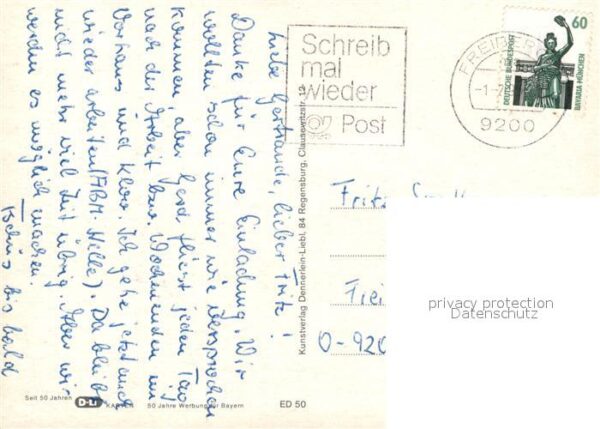 Liebe Gertraude, lieber Fritz!
Danke für Eure Einladung. Wir
wollten schon immer wie versprochen
kommen, aber Gerd fliest jeden Tag
nach der Arbeit bzw. Wochenenden im
Vorhaus und Klos. Ich gehe jetzt auch
wieder arbeiten (ABM-Stelle). Da bleibt
nicht mehr viel Zeit übrig. Aber wir
werden es möglich machen.
Tschüs bis bald
Schreib
mal
wieder
Post
FREIBERG
9200
60
DEUTSCHE BUNDESPOST
BAVARIA MÜNCHEN
Kunstverlag Dennerlein-Liebl, 84 Regensburg, Clausewitzstr. 19
Fritz
Frei
O-920
privacy protection
Datenschutz
Seit 50 Jahren D-Li KARTEN 50 Jahre Werbung für Bayern ED 50